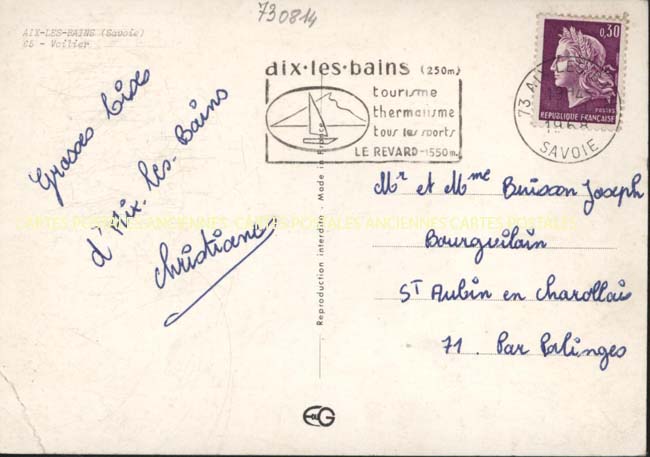 730814
AIX-LES-BAINS (Savoie)
C5 - Voilier
aix·les·bains (250m)
tourisme
thermalisme
tous les sports
LE REVARD-1550m.
73 AIX-LES-
1968
SAVOIE
0,30
POSTES
REPUBLIQUE FRANÇAISE
Grosses bises
d'Aix-les-Bains
Christiane
Reproduction interdite - Made in France
Mr et Mme Buisson Joseph
Bourguilain
ST Aubin en Charollais
71. Par Palinges
CARTES POSTALES ANCIENNES CARTES POSTALES ANCIENNES CARTES POSTALES